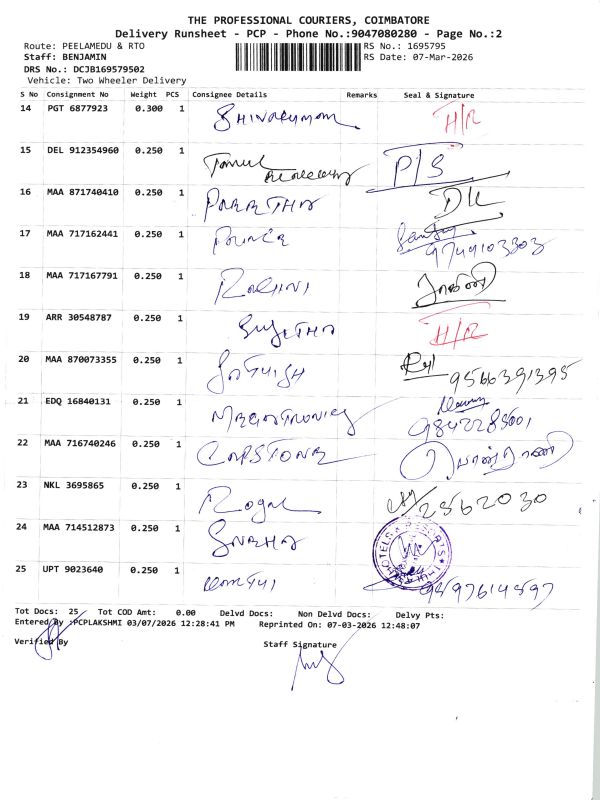 THE PROFESSIONAL COURIERS, COIMBATORE
Delivery Runsheet - PCP - Phone No.:9047080280 - Page No.:2
Route: PEELAMEDU & RTO RS No.: 1695795
Staff: BENJAMIN RS Date: 07-Mar-2026
DRS No.: DCJB169579502
Vehicle: Two Wheeler Delivery
S No Consignment No Weight PCS Consignee Details Remarks Seal & Signature
14 PGT 6877923 0.300 1 SHIVAKUMAR H/R
15 DEL 912354960 0.250 1 Tamil P/S
16 MAA 871740410 0.250 1
17 MAA 717162441 0.250 1 PRINCE 9749103303
18 MAA 717167791 0.250 1 ராகினி
19 ARR 30548787 0.250 1 SUJETHA H/R
20 MAA 870073355 0.250 1 SATHISH 9566391395
21 EDQ 16840131 0.250 1
22 MAA 716740246 0.250 1 CAPSTONE
23 NKL 3695865 0.250 1 Royal 2562030
24 MAA 714512873 0.250 1 SNEHA HOTELS RESORTS
25 UPT 9023640 0.250 1
Tot Docs: 25 Tot COD Amt: 0.00 Delvd Docs: Non Delvd Docs: Delvy Pts:
Entered By :PCPLAKSHMI 03/07/2026 12:28:41 PM Reprinted On: 07-03-2026 12:48:07
Verified By Staff Signature